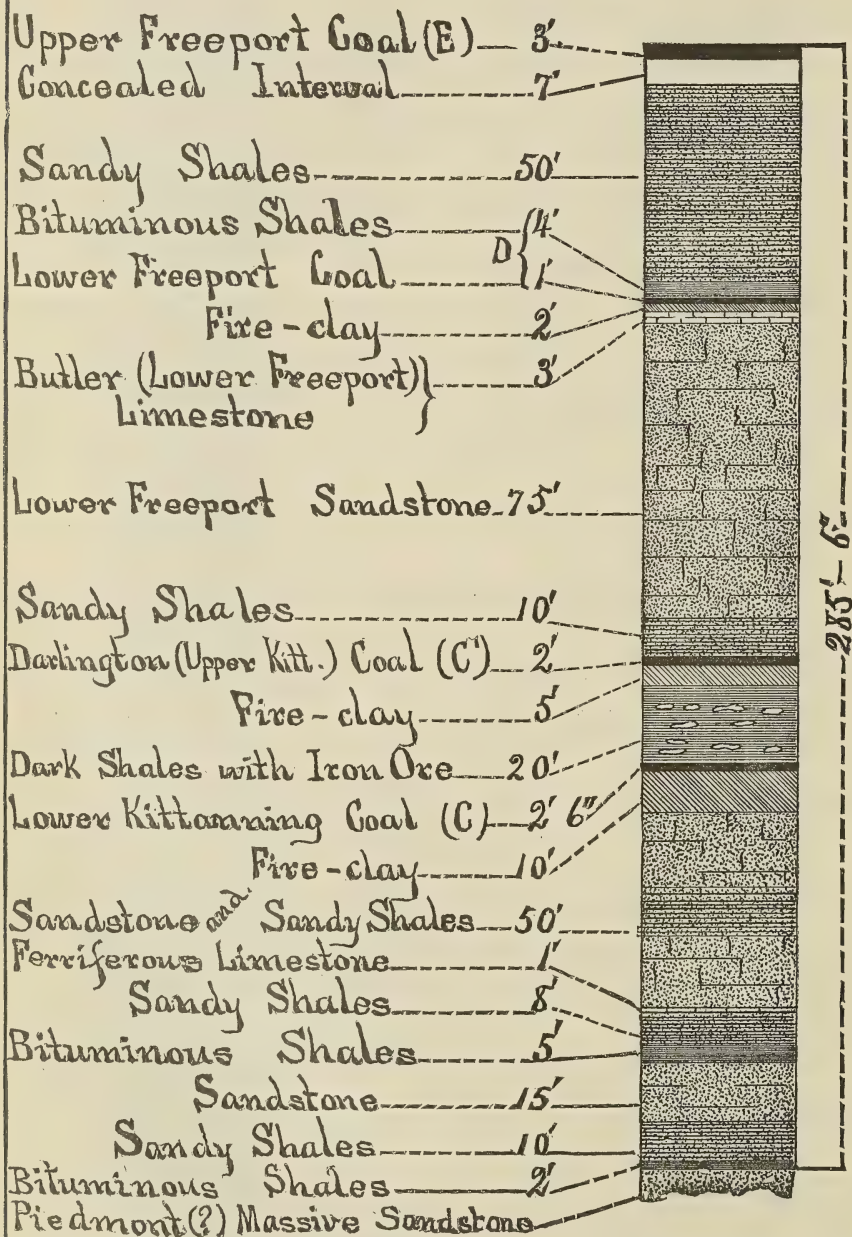 Upper Freeport Coal (E) 3'
Concealed Interval 7'
Sandy Shales 50'
Bituminous Shales 4'
D
Lower Freeport Coal 1'
Fire-clay 2'
Butler (Lower Freeport) 3'
Limestone
Lower Freeport Sandstone 75'
Sandy Shales 10'
Darlington (Upper Kitt.) Coal (C') 2'
Fire-clay 5'
Dark Shales with Iron Ore 20'
Lower Kittanning Coal (C) 2' 6"
Fire-clay 10'
Sandstone and Sandy Shales 50'
Ferriferous Limestone 1'
Sandy Shales 8'
Bituminous Shales 5'
Sandstone 15'
Sandy Shales 10'
Bituminous Shales 2'
Piedmont (?) Massive Sandstone
285'-6"